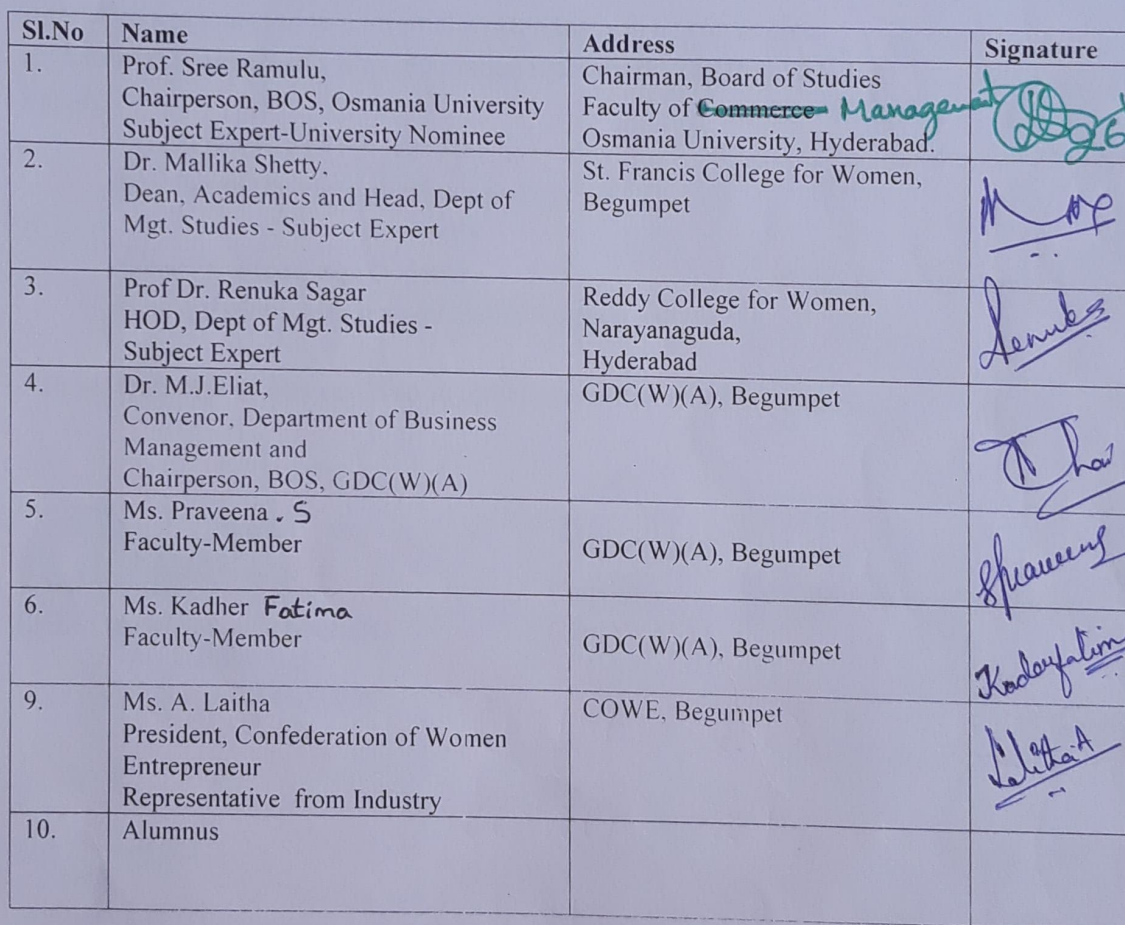 Sl.No Name Address Signature
1. Prof. Sree Ramulu,
Chairperson, BOS, Osmania University
Subject Expert-University Nominee
Chairman, Board of Studies
Faculty of Commerce Management
Osmania University, Hyderabad.
2. Dr. Mallika Shetty.
Dean, Academics and Head, Dept of
Mgt. Studies - Subject Expert
St. Francis College for Women,
Begumpet
3. Prof Dr. Renuka Sagar
HOD, Dept of Mgt. Studies -
Subject Expert
Reddy College for Women,
Narayanaguda,
Hyderabad
Renuka
4. Dr. M.J.Eliat,
Convenor, Department of Business
Management and
Chairperson, BOS, GDC(W)(A)
GDC(W)(A), Begumpet
5. Ms. Praveena . S
Faculty-Member
GDC(W)(A), Begumpet
6. Ms. Kadher Fatima
Faculty-Member
GDC(W)(A), Begumpet
9. Ms. A. Laitha
President, Confederation of Women
Entrepreneur
Representative from Industry
COWE, Begumpet
Lalitha A
10. Alumnus